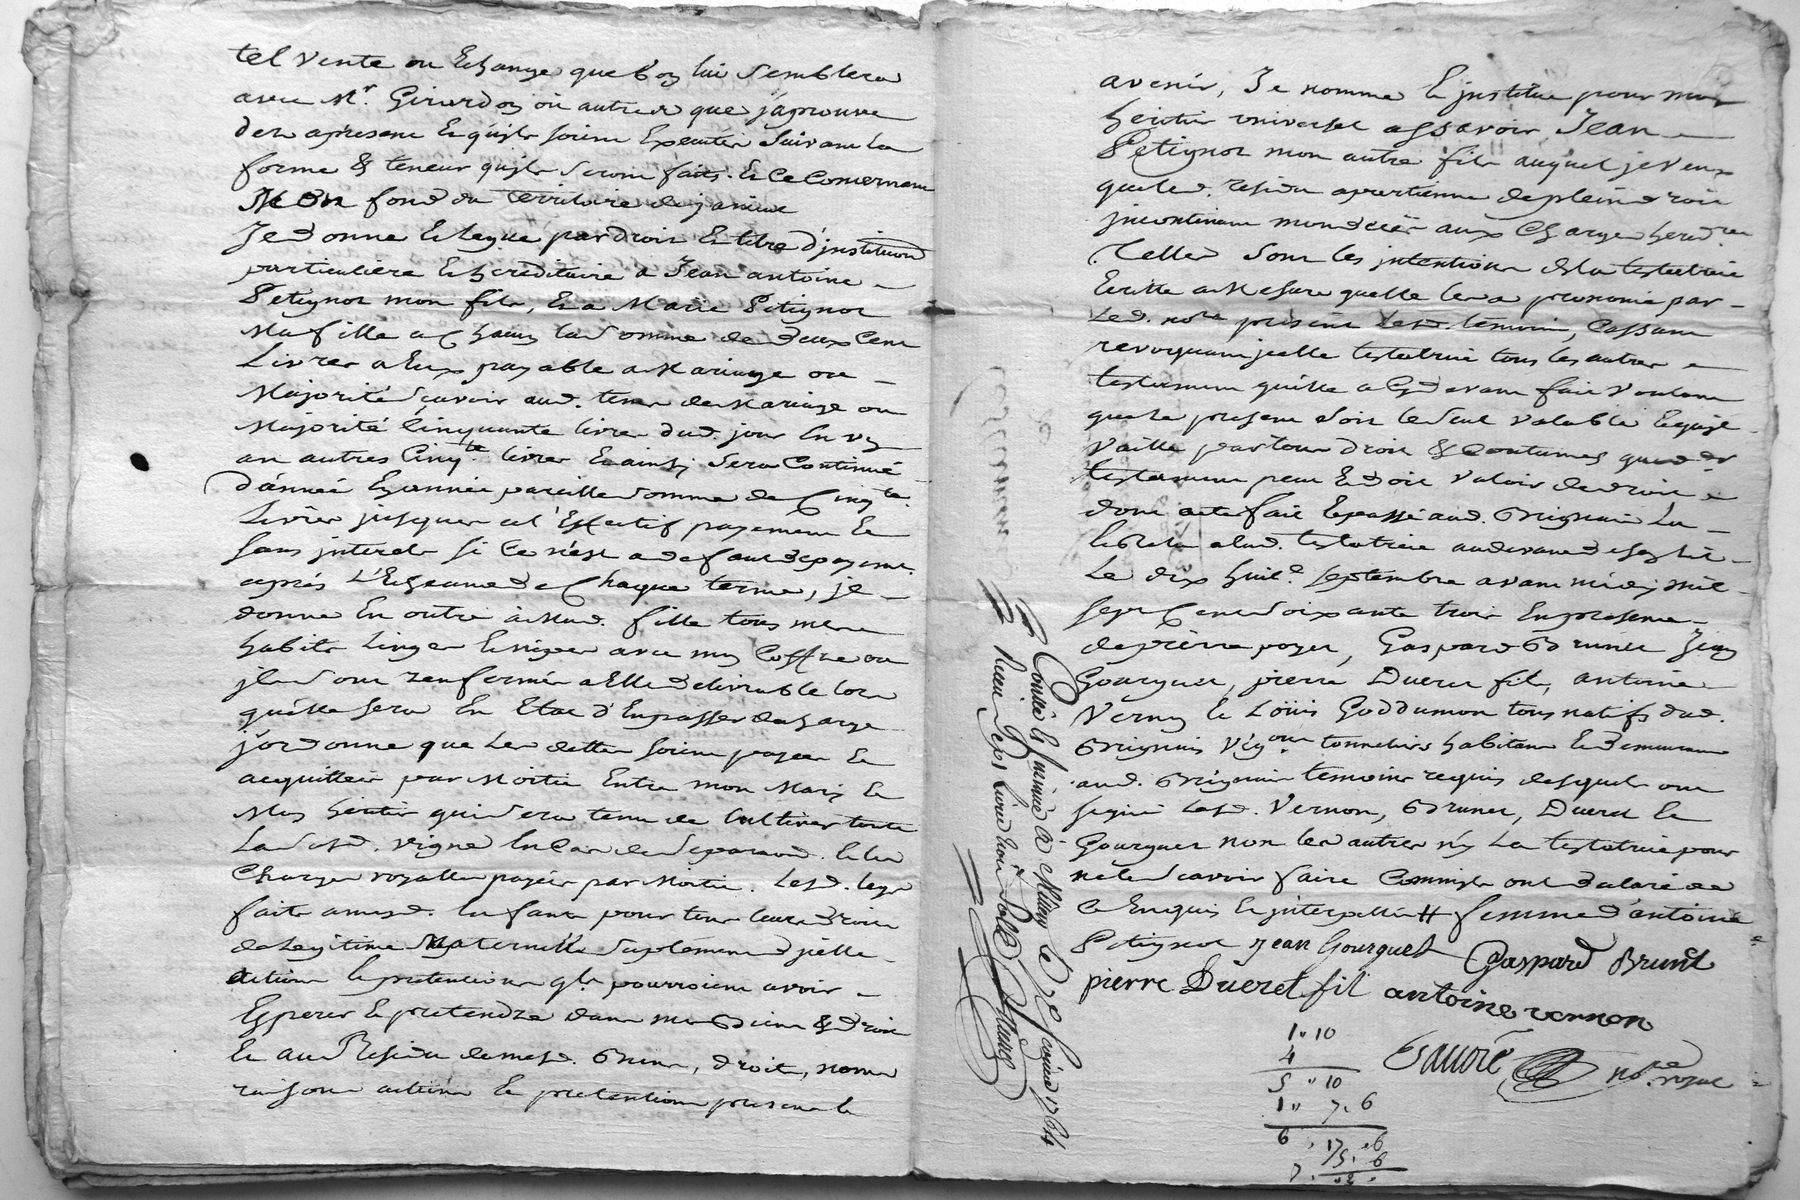 tel vente ou Echange que bon lui Semblera
avec Mr. Girardon ou autres que japrouve
des apresent & quils soient Executés Suivant la
forme & teneur quils seront faits. Et Ce Concernant
Mon fond du territoire de
Je donne & legue par droit & titre d'institution
particulière & hereditaire a Jean antoine
Petignot mon fils, & a Marie Petignot
Ma fille a Chacun la Somme de deux Cent
Livres a Eux payable a Mariage ou
Majorité Scavoir aud. tems de Mariage ou
Majorité Cinquante livres dud. jour En un
an autres Cinqte. livres Et ainsi Sera Continué
d'année En année pareille Somme de Cinqte.
Livres jusques a l'Effectif payement &
sans interets si Ce n'est a defaut de payemt.
après L'Echeance de Chaque terme, je
donne En outre à Mad. fille tous mes
habits Linges & nipes avec mon Coffre ou
ils Sont renfermés a Elle delivrable lors
quelle sera En Etat d'En passer decharge
j'ordonne que Les dettes soient payées &
acquittées par Moitié Entre mon Mary &
Mon heritier qui Sera tenu de Cultiver toute
Lad. vigne En Cas de Separaon. & les
Charges royalles payées par Moitié. Lesd. legs
faits a mesd. Enfants pour tous leurs droits
de Legitime Maternelle Suplement d'jcelle
actions & pretentions qls. pourroient avoir
Esperer & pretendre dans mes Biens & droits
& au Residu de mesd. Biens, droits, noms
raisons actions & pretentions present &
avenir, Je nomme & jnstitue pour mon
heritier universel assavoir Jean
Petignot mon autre fils auquel je veux
que led. residu apartienne de plein droit
jncontinent mon deces aux Charges heredres.
Telles Sont les jntentions de la testatrice
Ecritte a Mesure quelle les a prononcé par
Led. nore. present Lesd. temoins, Cassant
revoquant jcelle testatrice tous les autres
testament quelle a Cy devant fait Voulant
que le present soit le Seul valable & quil
vaille par tous droits & Coutumes que
testament peut & doit valoir de droit
dont acte fait & passé aud. Brignais
de lad. testatrice
Le dix huite. septembre avant midy mil
sept Cent Soixante trois En presence
de pierre poyer, Gaspard Brunet Jean
Gourguet, pierre Dueret fils, antoine
Vernon & Loüis Goddumon tous natifs dud.
Brignais Vigons. tonneliers habitant & demeurant
aud. Brignais temoins requis desquels ont
signé Lesd. Vernon, Brunet, Dueret &
Gourguet non les autres ny La testatrice pour
ne le Scavoir faire Comme ils ont declaré de
Ce Enquis & jnterpellé # femme d'antoine
Petignot jean Gourguet Gaspard Brunet
pierre Dueret fil antoine vernon
nore. royal
1 " 10
4
5 " 10
1 " 7 . 6
6 . 17 . 6
Conllé & jnsinué à